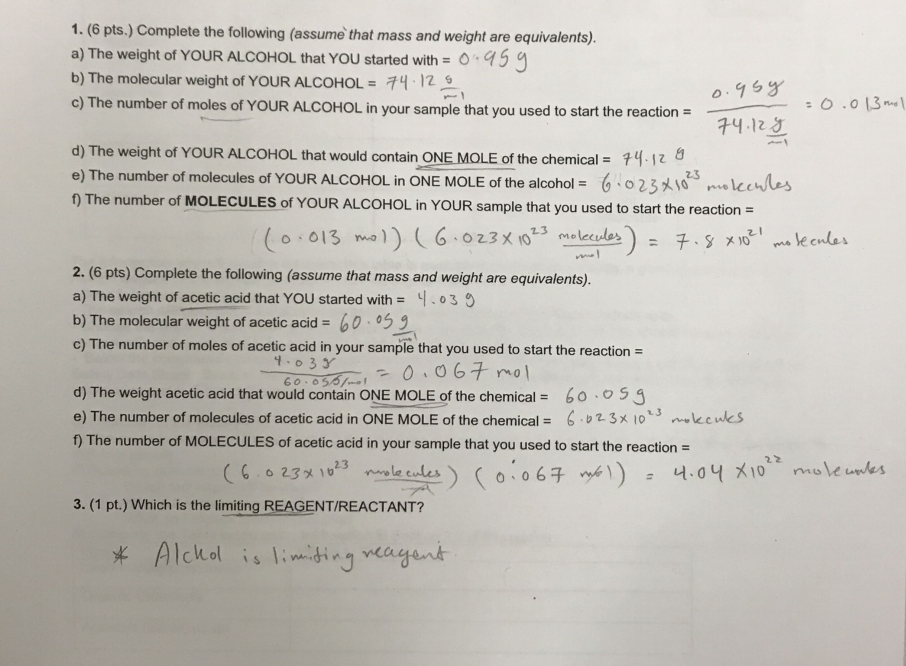 1. (6 pts.) Complete the following (assume that mass and weight are equivalents).
a) The weight of YOUR ALCOHOL that YOU started with = 0.95 g
b) The molecular weight of YOUR ALCOHOL = 74.12 g/mol
c) The number of moles of YOUR ALCOHOL in your sample that you used to start the reaction = 0.95g / 74.12 g/mol = 0.013 mol
d) The weight of YOUR ALCOHOL that would contain ONE MOLE of the chemical = 74.12 g
e) The number of molecules of YOUR ALCOHOL in ONE MOLE of the alcohol = 6.023×10²³ molecules
f) The number of MOLECULES of YOUR ALCOHOL in YOUR sample that you used to start the reaction =
(0.013 mol) (6.023×10²³ molecules/mol) = 7.8 ×10²¹ molecules
2. (6 pts) Complete the following (assume that mass and weight are equivalents).
a) The weight of acetic acid that YOU started with = 4.03 g
b) The molecular weight of acetic acid = 60.05 g/mol
c) The number of moles of acetic acid in your sample that you used to start the reaction =
4.03 g / 60.05 g/mol = 0.067 mol
d) The weight acetic acid that would contain ONE MOLE of the chemical = 60.05 g
e) The number of molecules of acetic acid in ONE MOLE of the chemical = 6.023×10²³ molecules
f) The number of MOLECULES of acetic acid in your sample that you used to start the reaction =
(6.023×10²³ molecules/mol) (0.067 mol) = 4.04 ×10²² molecules
3. (1 pt.) Which is the limiting REAGENT/REACTANT?
* Alchol is limiting reagent.